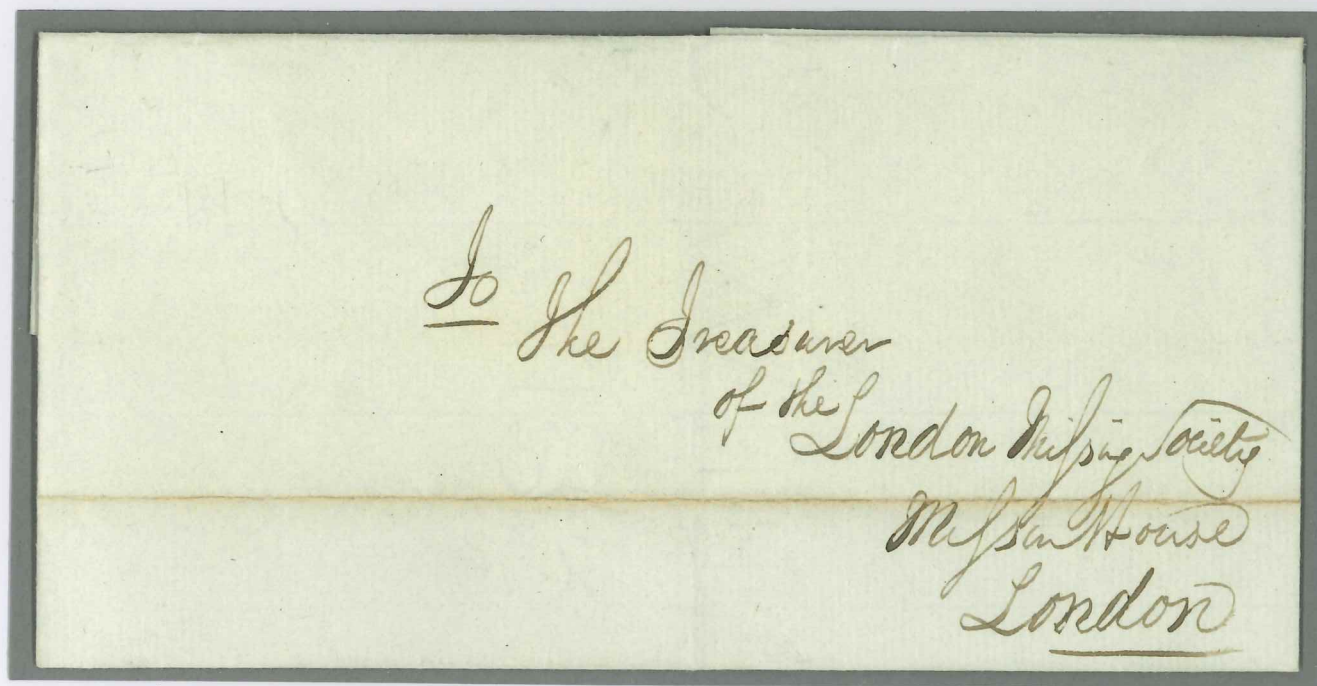 To
The Treasurer
of the
London Missny Society
Mission House
London